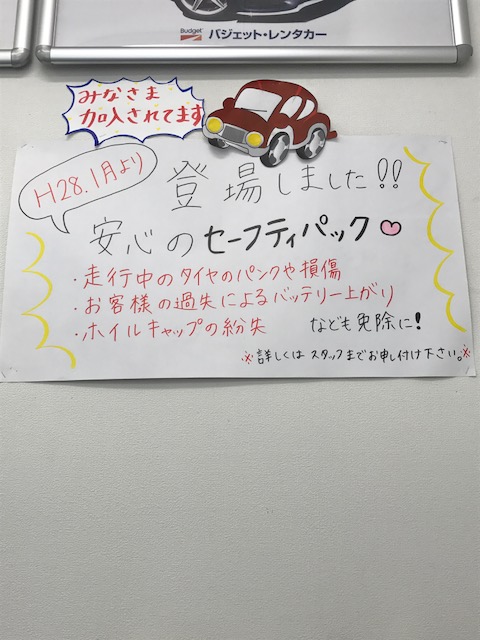 Budget バジェット・レンタカー
みなさま
加入されてます
H28.1月より
登場しました!!
安心のセーフティパック♡
・走行中のタイヤのパンクや損傷
・お客様の過失によるバッテリー上がり
・ホイルキャップの紛失 なども免除に!
※詳しくはスタッフまでお申し付け下さい。※